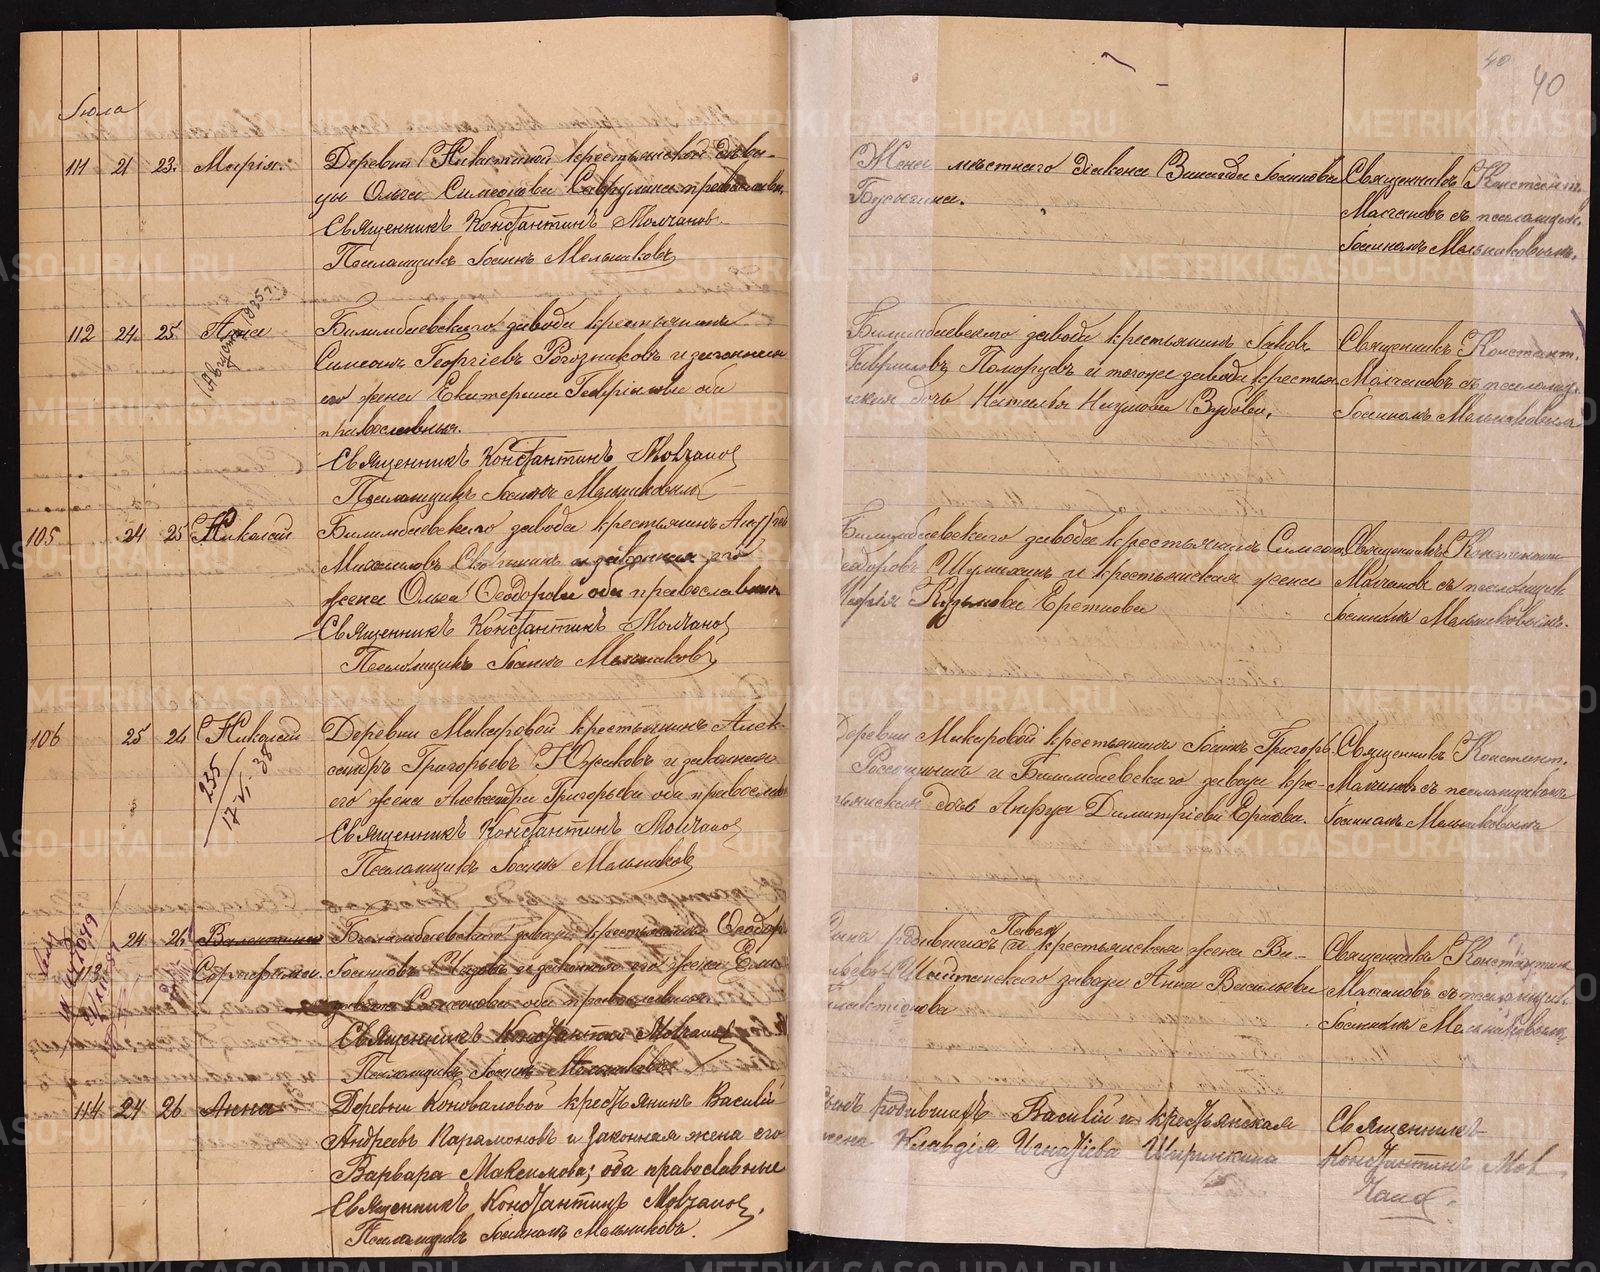 Іюля
111 21 23. Марія.
Деревни Никитиной крестьянской дѣви-
цы Ольги Симеоновой православн.
Священникъ Константинъ Молчановъ
Псаломщикъ Іоаннъ Мельниковъ
112 24. 25 Анна
Билимбаевскаго завода крестьянинъ
Симеонъ Георгіевъ Рогозниковъ и законная
его жена Екатерина Гавріилова оба
православные.
Священникъ Константинъ Молчановъ
Псаломщикъ Іоаннъ Мельниковъ
105 24 25 Николай
Билимбаевскаго завода крестьянинъ Андрей
Михаиловъ и законная его
жена Ольга Ѳеодорова оба православные
Священникъ Константинъ Молчановъ
Псаломщикъ Іоаннъ Мельниковъ
106 25 26 Николай
235
17-VI-38
Деревни Макаровой крестьянинъ Алек-
сандръ Григорьевъ Южаковъ и законная
его жена Александра Григорьева оба православн
Священникъ Константинъ Молчановъ
Псаломщикъ Іоаннъ Мельниковъ
113 24 26 Валентина
Серафима
Билимбаевскаго завода крестьянинъ Ѳеодоръ
Іоанновъ и законная его жена Ели-
завета оба православные
Священникъ Константинъ Молчановъ
Псаломщикъ Іоаннъ Мельниковъ
114 24 26 Анна
Деревни Коноваловой крестьянинъ Василій
Андреевъ Парамоновъ и законная жена его
Варвара Максимова; оба православные
Священникъ Константинъ Молчановъ.
Псаломщикъ Іоаннъ Мельниковъ.
40 40
Жена мѣстнаго діакона Зинаида Іоаннова
Бусыгина.
Священникъ Констант.
Молчановъ съ псаломщик.
Іоанномъ Мельниковымъ.
Билимбаевскаго завода крестьянинъ Іаковъ
Гавриловъ Поморцевъ и тогоже завода крестьян
ская дочь Наталья Наумова Зубова.
Священникъ Констант.
Молчановъ съ псаломщ.
Іоанномъ Мельниковымъ
Билимбаевскаго завода крестьянинъ Симеонъ
Ѳедоровъ Шумихинъ и крестьянская жена
Марія Кузьмова Еретнова
Священникъ Константин
Молчановъ съ псаломщик
Іоанномъ Мельниковымъ.
Деревни Макаровой крестьянинъ Іоаннъ Григорь
и Билимбаевскаго завода кре-
стьянская дочь Анфуса Димитріева
Священникъ Констант.
Молчановъ съ псаломщикомъ
Іоанномъ Мельниковымъ
Сынъ родившихъ Павелъ и крестьянская жена Ва-
Шайтанскаго завода Анна Васильева
Галактіонова
Священникъ Константинъ
Молчановъ съ псаломщик.
Іоанномъ Мельниковымъ
Сынъ родившихъ Василій и крестьянская
жена Клавдія Игнатіева Ширинкина
Священникъ
Константинъ Мол
чановъ.
METRIKI.GASO-URAL.RU